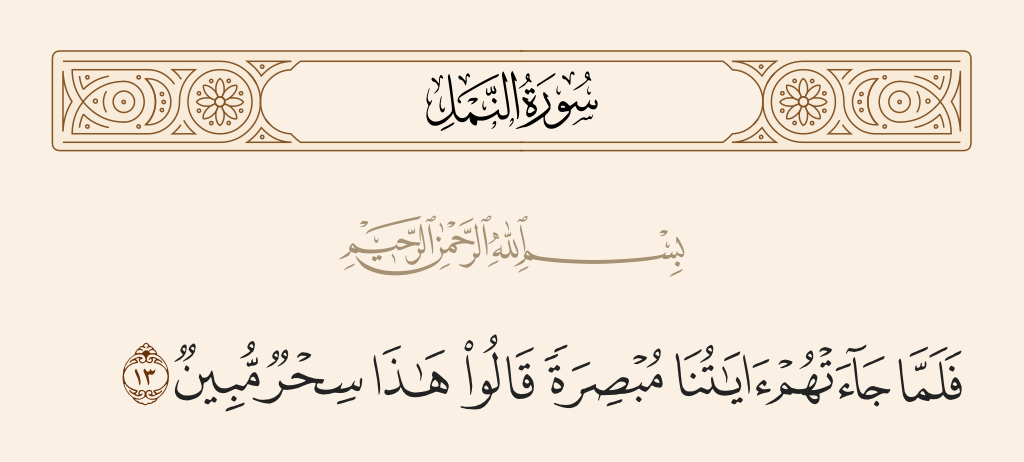 سُورَةُ النَّمْلِ
بِسْمِ ٱللَّهِ ٱلرَّحْمَٰنِ ٱلرَّحِيمِ
فَلَمَّا جَآءَتْهُمْ ءَايَٰتُنَا مُبْصِرَةً قَالُوا۟ هَٰذَا سِحْرٌ مُّبِينٌ ١٣